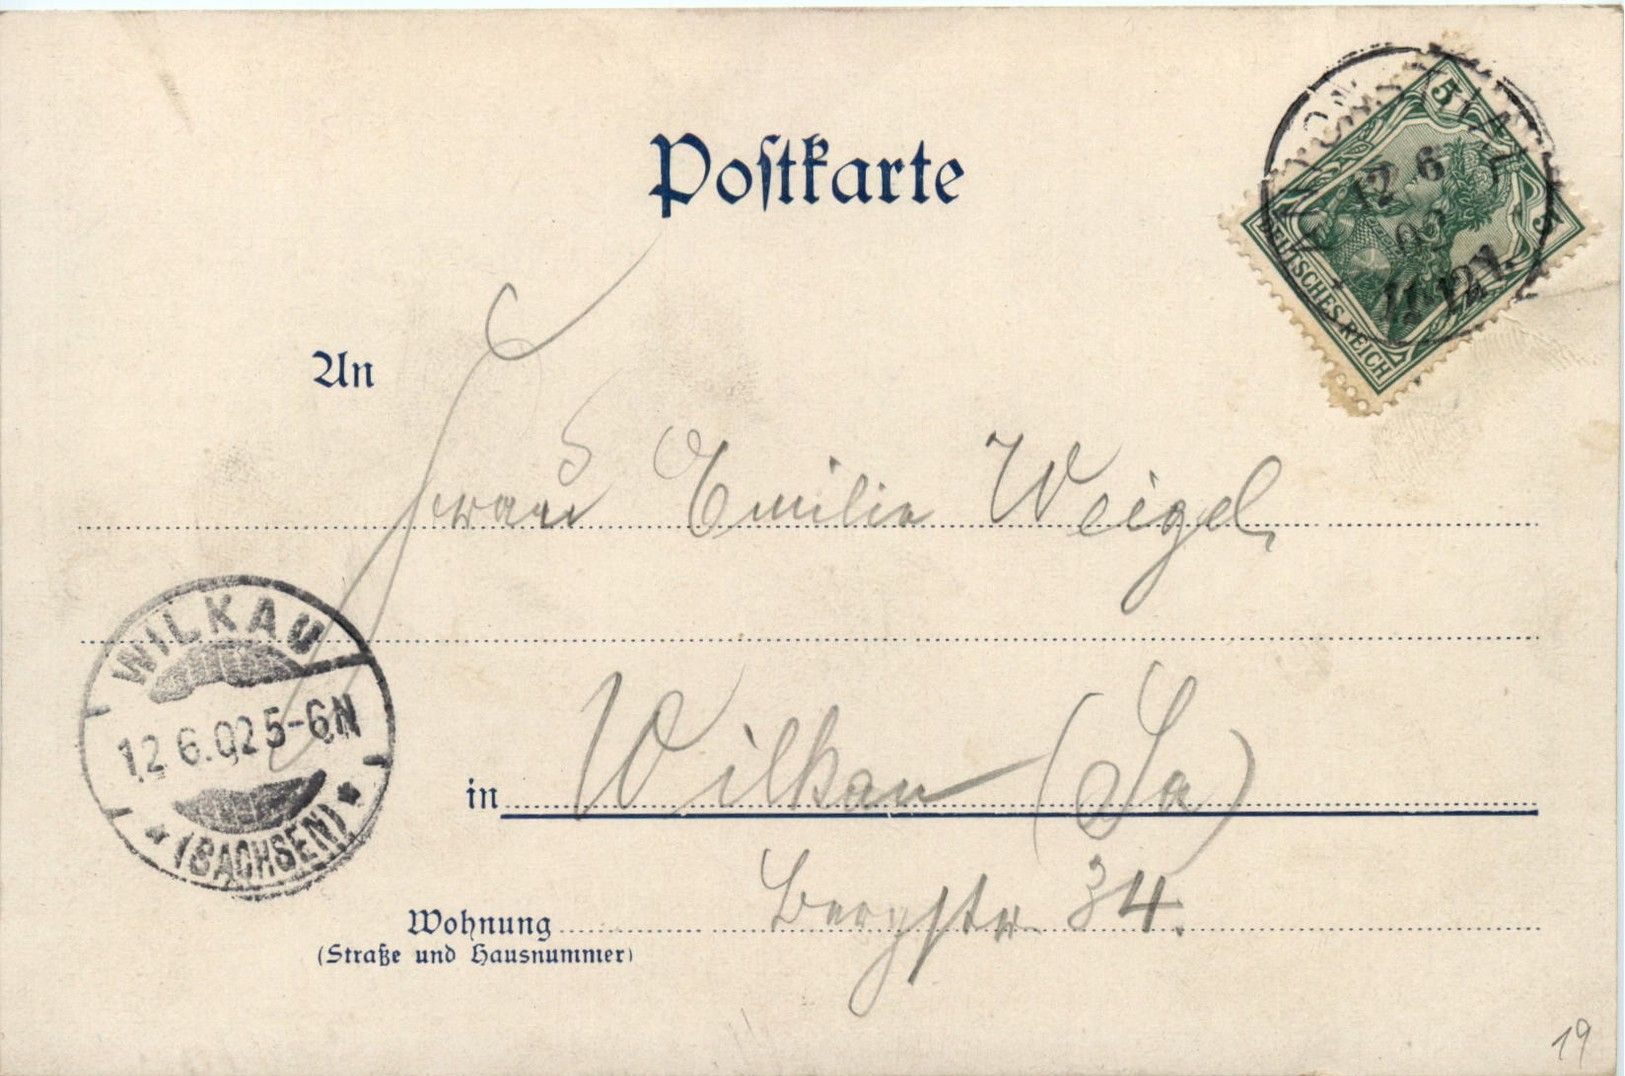 Postkarte
5 5
DEUTSCHES REICH
12 6
02
11-12V.
An
Frau Emilie Weigel,
WILKAU
12.6.02 5-6N
* (SACHSEN) *
in Wilkau (Sa)
Wohnung Bergstr. 34.
(Straße und Hausnummer)
19